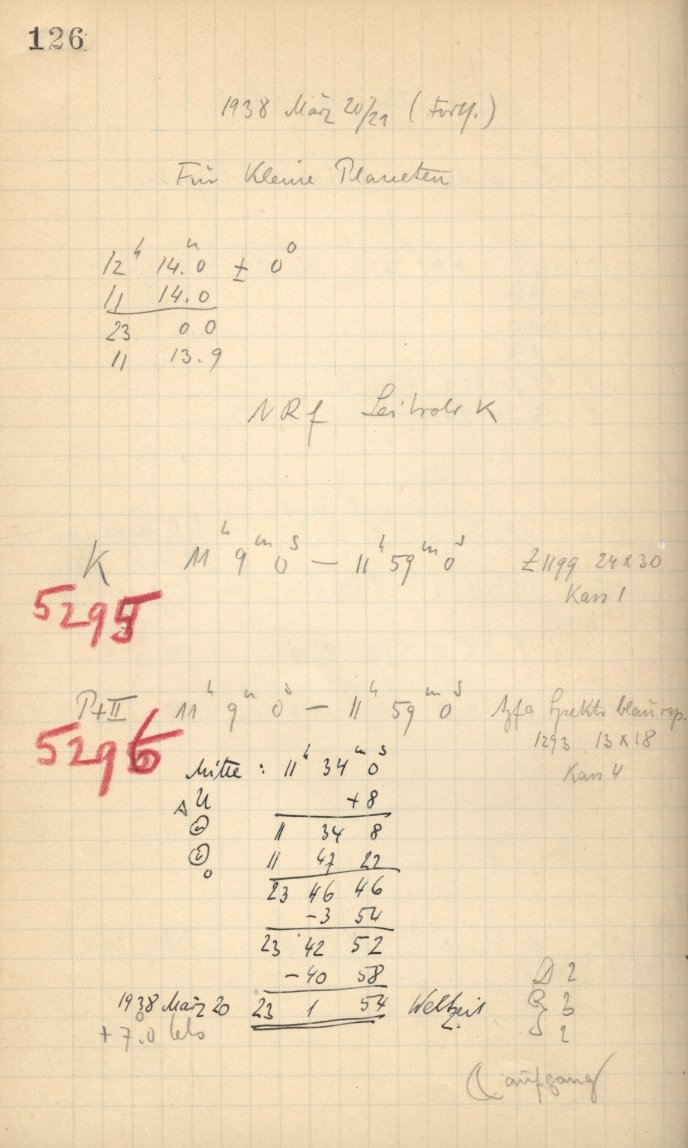 126
1938 März 20/21 (Forts.)
Für Kleine Planeten
12h 14.m0 ± 0°
11 14.0
23 00
11 13.9
NRf Leitrohr K
K 11h 9m 0s — 11h 59m 0s Z1199 24x30
5295 Kass 1
P+II 11h 9m 0s — 11h 59m 0s Agfa Spektr. blau rap.
5296 1293 13x18
Mitte: 11h 34m 0s Kass 4
ΔU +8
11 34 8
11 47 22
23 46 46
-3 54
23 42 52
-40 58
1938 März 20 23 1 54 Weltzeit
+7.°0
D 2
R 3
S 2
☾ aufgang